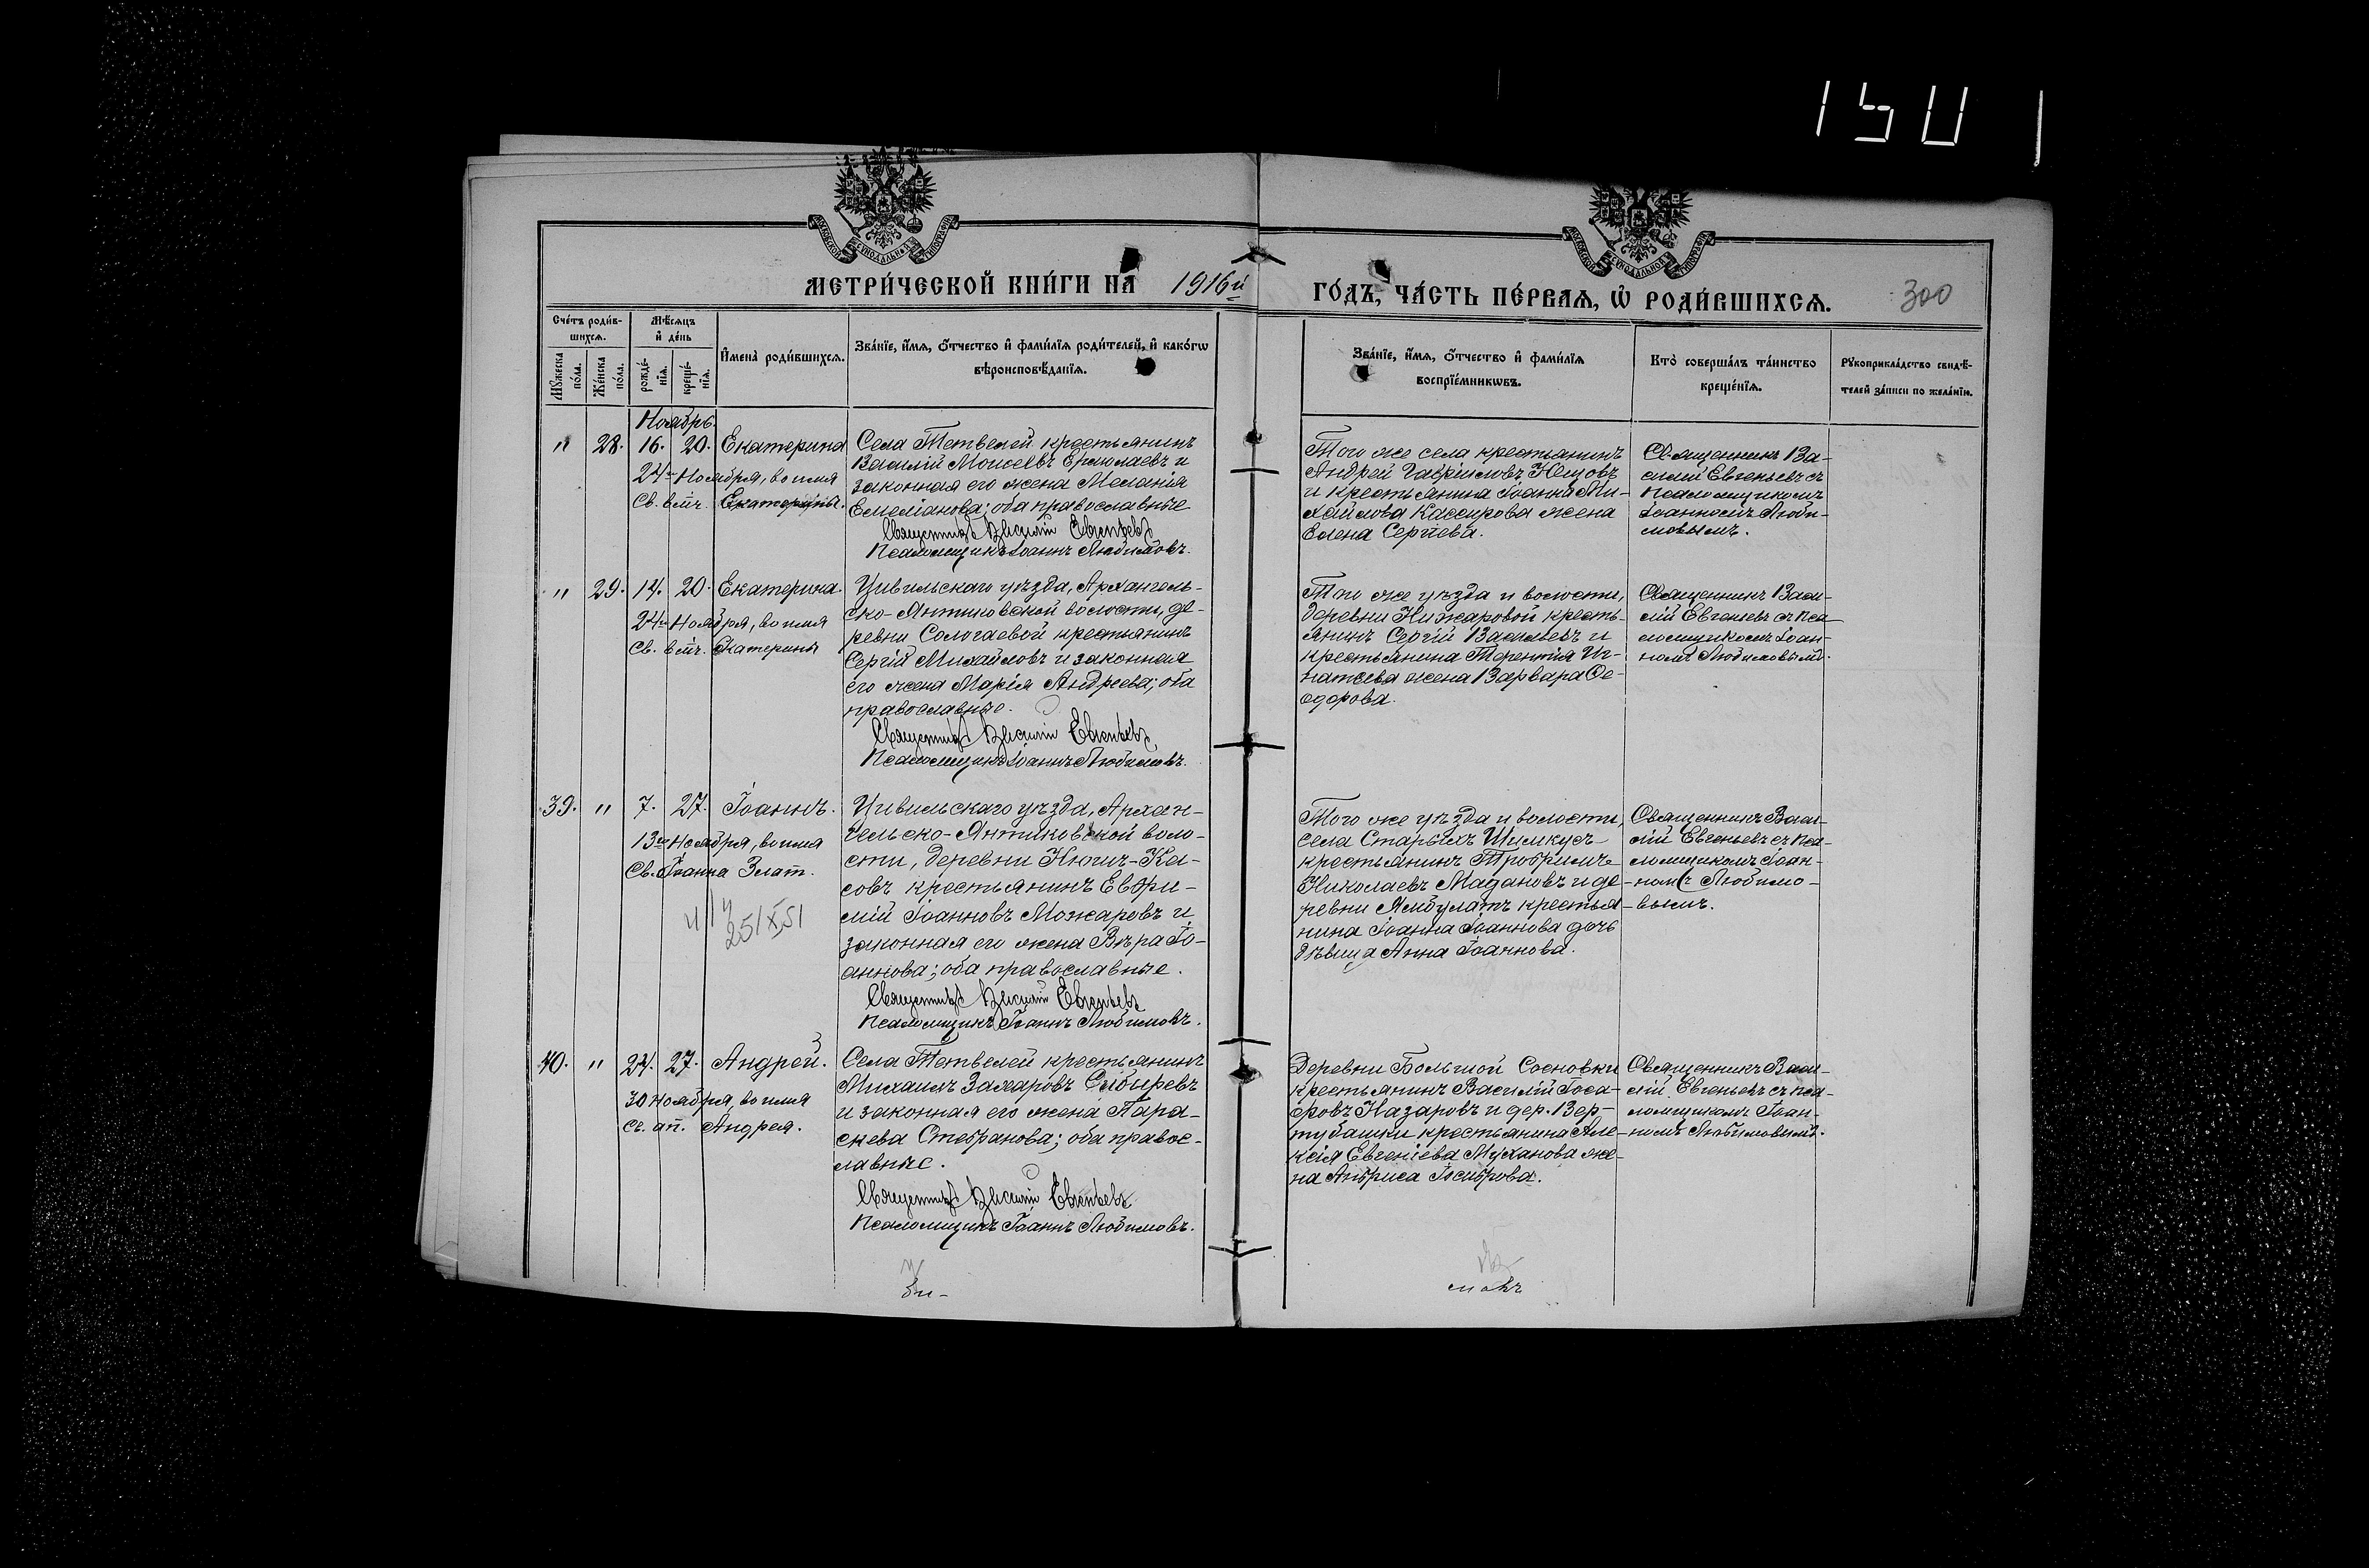 МЕТРИ́ЧЕСКОЙ КНИ́ГИ НА 1916й
ГО́ДЪ, ЧА́СТЬ ПЕ́РВАЯ, Ѡ РОДИ́ВШИХСЯ.
300
Сче́тъ роди́в-
шихся.
Мѣ́сяцъ
и де́нь
Мꙋ́жеска
по́ла.
Же́нска
по́ла.
рожде́-
нїя.
креще́-
нїя.
Имена̀ роди́вшихся.
Зва́нїе, и́мя, ѻ́тчество и фами́лїя роди́телей, и како́гѡ
вѣроисповѣ́данїя.
Зва́нїе, и́мя, ѻ́тчество и фами́лїя
воспрїе́мникѡвъ.
Кто̀ соверша́лъ та́инство
креще́нїя.
Рꙋкоприкла́дство свидѣ́-
телей за́писи по жела́нїю.
Ноябрь.
" 28. 16. 20. Екатерина
24го Ноября, во имя
Св. вмч. Екатерины.
Села Тетвелей крестьянинъ
Василій Моисеевъ Ермолаевъ и
законная его жена Меланія
Емеліанова; оба православные
Священникъ Василій Евгеньевъ
Псаломщикъ Іоаннъ Любимовъ.
Того же села крестьянинъ
Андрей Гавріиловъ
и крестьянина Іоанна Ми-
хайлова Кассирова жена
Елена Сергіева.
Священникъ Ва-
силій Евгеньевъ съ
псаломщикомъ
Іоанномъ Люби-
мовымъ.
" 29. 14. 20. Екатерина.
24го Ноября, во имя
Св. вмч. Екатерины
Цивильскаго уѣзда, Архангель-
ско-Янтиковской волости, де-
ревни Сологаевой крестьянинъ
Сергій Михайловъ и законная
его жена Марія Андреева; оба
православные.
Священникъ Василій Евгеньевъ
Псаломщикъ Іоаннъ Любимовъ.
Того же уѣзда и волости,
деревни Нижаровой кресть-
янинъ Сергій Васильевъ и
крестьянина Терентія Иг-
натьева жена Варвара Ѳе-
одорова.
Священникъ Васи-
лій Евгеньевъ съ пса-
ломщикомъ Іоан-
номъ Любимовымъ.
39. " 7. 27. Іоаннъ.
13го Ноября, во имя
Св. Іоанна Злат.
25/XI 51
Цивильскаго уѣзда, Архан-
гельско-Янтиковской воло-
сти, деревни Нюгич-Ка-
совъ крестьянинъ Евфи-
мій Іоанновъ Можаровъ и
законная его жена Вѣра Іо-
аннова; оба православные.
Священникъ Василій Евгеньевъ
Псаломщикъ Іоаннъ Любимовъ.
Того же уѣзда и волости,
села Старыхъ Шимкусъ
крестьянинъ Трофимъ
Николаевъ Мадановъ и де-
ревни Ямбулатъ крестья-
нина Іоанна Іоаннова дочь
дѣвица Анна Іоаннова.
Священникъ Васи-
лій Евгеньевъ съ пса-
ломщикомъ Іоан-
номъ Любимо-
вымъ.
40. " 24. 27. Андрей.
30 ноября, во имя
Св. ап. Андрея.
Села Тетвелей крестьянинъ
Михаилъ Захаровъ Сибиревъ
и законная его жена Пара-
скева Стефанова; оба правос-
лавные.
Священникъ Василій Евгеньевъ
Псаломщикъ Іоаннъ Любимовъ.
Деревни Большой Сосновки
крестьянинъ Василій
Назаровъ и дер. Вер-
тубашки крестьянина Але-
ксія Евгеніева Муханова же-
на Анфиса
Священникъ Васи-
лій Евгеньевъ съ пса-
ломщикомъ Іоан-
номъ Любимовымъ.